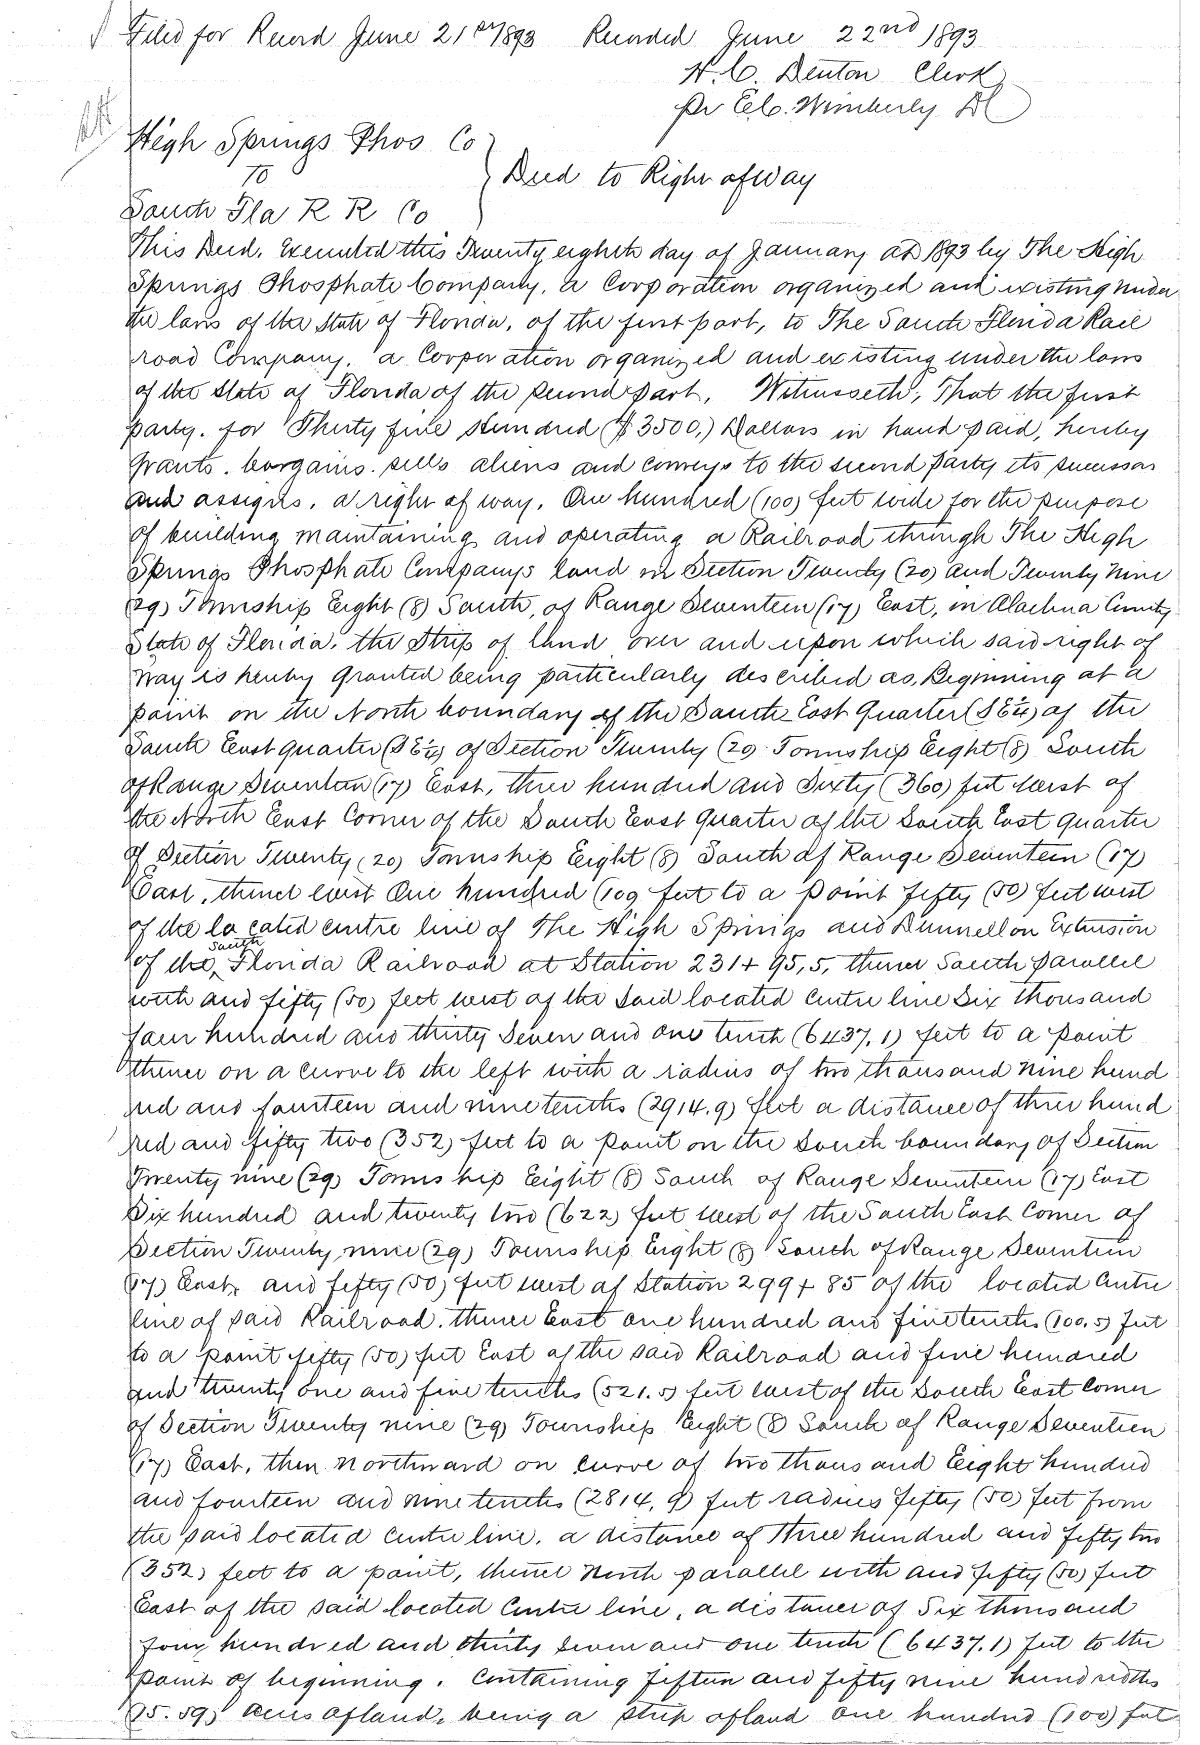 Filed for Record June 21st 1893 Recorded June 22nd 1893
H. C. Denton Clerk
pr E. C. Wimberly DC
High Springs Phos Co
To
Deed to Right of Way
South Fla R R Co
This Deed, Executed this Twenty eighth day of January AD 1893 by The High
Springs Phosphate Company, a Corporation organized and existing under
the laws of the State of Florida, of the first part, to The South Florida Rail
road Company, a Corporation organized and existing under the laws
of the State of Florida of the second part, Witnesseth, That the first
party, for Thirty five Hundred ($3500.) Dollars in hand paid, hereby
grants, bargains, sells aliens and conveys to the second party its successors
and assigns, a right of way, One hundred (100) feet wide for the purpose
of building maintaining and operating a Railroad through The High
Springs Phosphate Companys land in Section Twenty (20) and Twenty Nine
(29) Township Eight (8) South, of Range Seventeen (17) East, in Alachua County
State of Florida, the Strip of land over and upon which said right of
Way is hereby granted being particularly described as, Beginning at a
point on the North boundary of the South East Quarter (SE¼) of the
South East quarter (SE¼) of Section Twenty (20 Township Eight (8) South
of Range Seventeen (17) East, three hundred and Sixty (360) feet West of
the North East Corner of the South East Quarter of the South East Quarter
of Section Twenty (20) Township Eight (8) South of Range Seventeen (17)
East, thence west One hundred (100 feet to a point fifty (50) feet west
of the located centre line of The High Springs and Dunnellon Extension
of the South Florida Railroad at Station 231+95,5, thence South parallel
with and fifty (50) feet west of the said located centre line Six thousand
four hundred and thirty Seven and one tenth (6437.1) feet to a point
thence on a curve to the left with a radius of two thousand nine hund
red and fourteen and nine tenths (2914.9) feet a distance of three hund
red and fifty two (352) feet to a point on the South boundary of Section
Twenty nine (29) Township Eight (8) South of Range Seventeen (17) East
Six hundred and twenty two (622) feet west of the South East Corner of
Section Twenty nine (29) Township Eight (8) South of Range Seventeen
(17) East, and fifty (50) feet west of Station 299+85 of the located Centre
line of said Railroad, thence East one hundred and five tenths (100.5) feet
to a point fifty (50) feet East of the said Railroad and five hundred
and twenty one and five tenths (521.5) feet west of the South East corner
of Section Twenty nine (29) Township Eight (8) South of Range Seventeen
(17) East, then Northward on curve of two thousand Eight hundred
and fourteen and nine tenths (2814.9) feet radius fifty (50) feet from
the said located centre line, a distance of three hundred and fifty two
(352) feet to a point, thence North parallel with and fifty (50) feet
East of the said located Centre line, a distance of Six thousand
four hundred and thirty Seven and one tenth (6437.1) feet to the
point of beginning. Containing fifteen and fifty nine hundredths
(15.59) acres of land, being a strip of land one hundred (100) feet